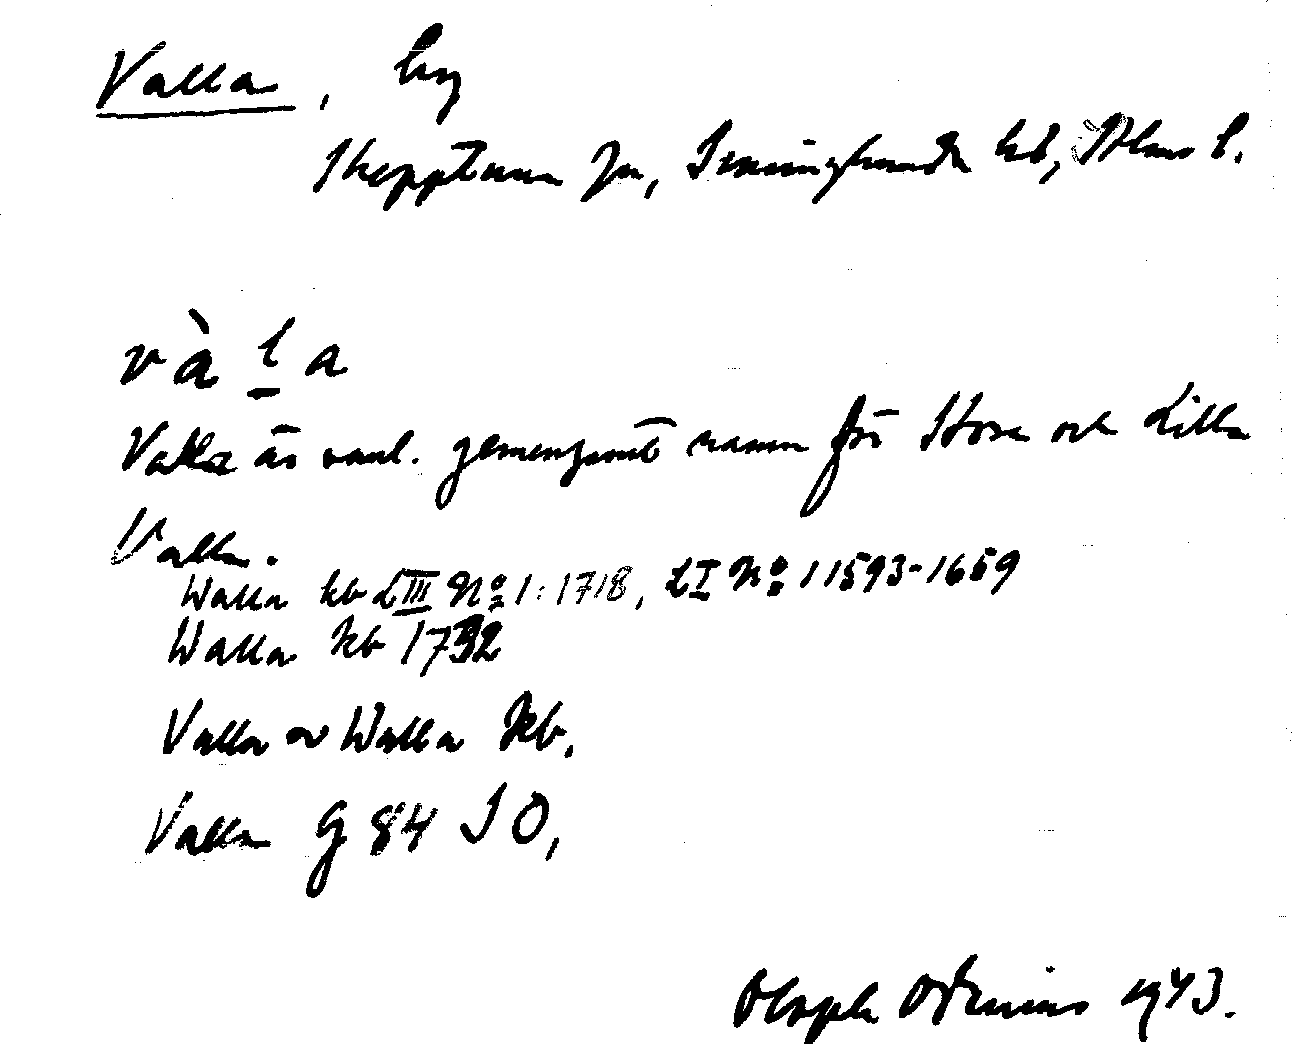 Valla, by
Skepptuna sn, Seminghundra hd, Sthms l.
và l a
Valla är vanl. gemensamt namn för Stora och Lilla
Valla.
Walla kb LIII No 1:1718, LI No 1 1593-1659
Walla kb 1732
Valla o Walla kb.
Valla G 84 J O,
Oloph Odenius 1943.